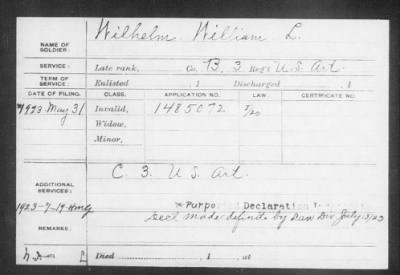 NAME OF SOLDIER: Wilhelm, William L.
SERVICE: Late rank, Co. B, 3 Reg't U.S. Art.
TERM OF SERVICE: Enlisted , 1 Discharged , 1
DATE OF FILING. CLASS. APPLICATION NO. LAW. CERTIFICATE NO.
1923 May 31 Invalid, 1485072
Widow,
Minor,
C. 3. U.S. Art.
ADDITIONAL SERVICES:
1923-7-19 Declaration
made definite by Law Div July
REMARKS:
Died , 1 , at